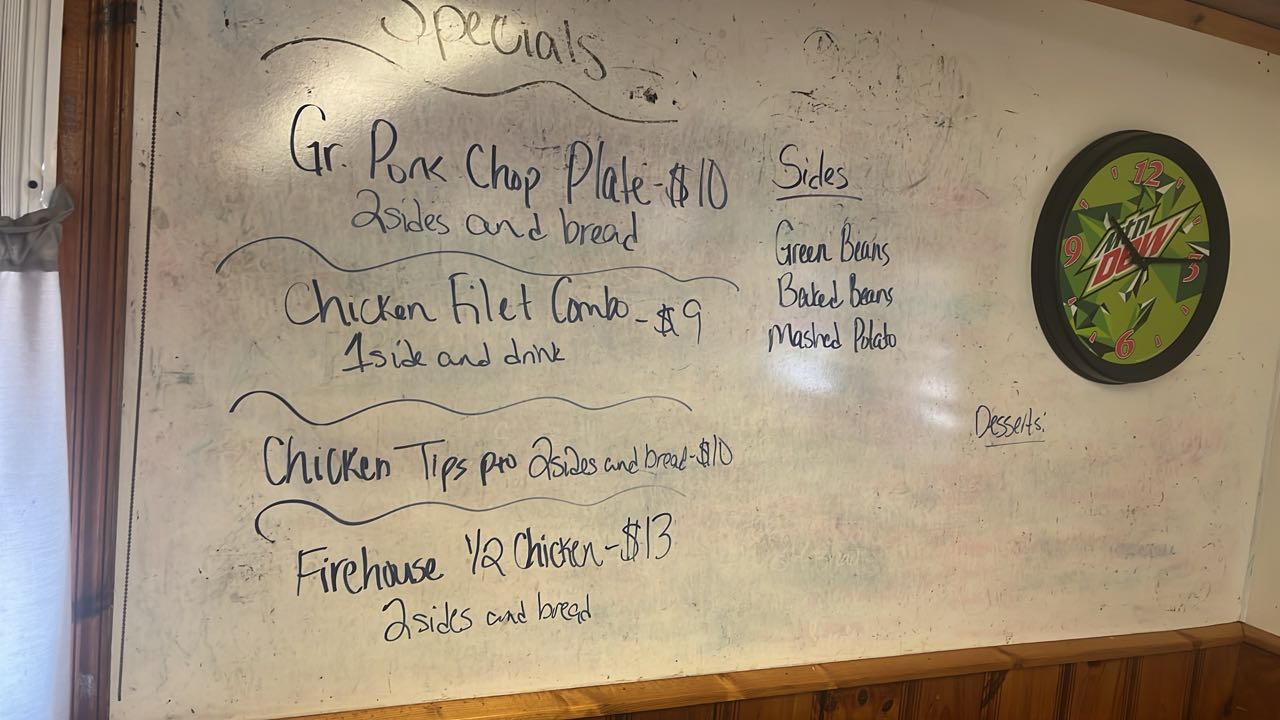 Specials
Gr. Pork Chop Plate - $10
2 sides and bread
Chicken Filet Combo - $9
1 side and drink
Chicken Tips pro 2 sides and bread - $10
Firehouse 1/2 Chicken - $13
2 sides and bread
Sides
Green Beans
Baked Beans
Mashed Potato
Desserts:
12
3
6
9
Mtn
DEW